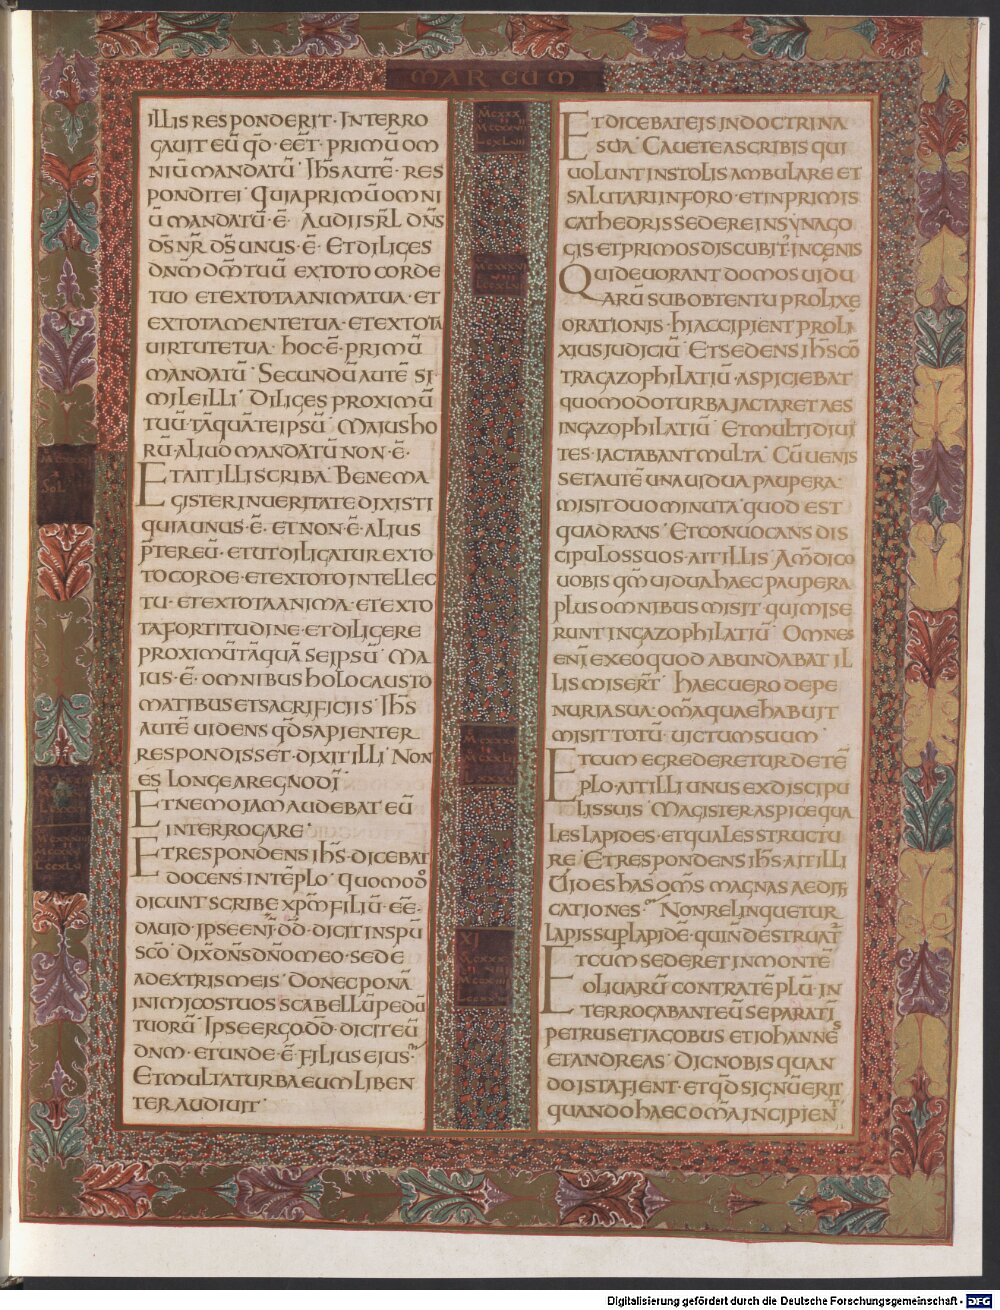 MARCUM
ILLIS RESPONDERIT · INTERRO
GAUIT EŪ QD̄ · EĒT · PRIMŪ OM
NIŪ MANDATŪ · IHS̄ AUTĒ · RES
PONDIT EI · QUIA PRIMŪ OMNI
Ū MANDATŪ · Ē · AUDI ISRL̄ DN̄S
DS̄ NR̄ DS̄ UNUS · Ē · ET DILIGES
DNM̄ DM̄ TUŪ EX TOTO CORDE
TUO ET EX TOTA ANIMA TUA · ET
EX TOTA MENTE TUA · ET EX TOTA
UIRTUTE TUA · HOC · Ē · PRIMŪ
MANDATŪ · SECUNDŪ AUTĒ SI
MILE ILLI · DILIGES PROXIMŪ
TUŪ · TĀQUĀ TE IPSŪ · MAIUS HO
RŪ · ALIUD MANDATŪ NON · Ē ·
ET AIT ILLI SCRIBA · BENE MA
GISTER IN UERITATE DIXISTI
QUIA UNUS · Ē · ET NON · Ē · ALIUS
P̄TER EŪ · ET UT DILIGATUR EX TO
TO CORDE · ET EX TOTO INTELLEC
TU · ET EX TOTA ANIMA · ET EX TO
TA FORTITUDINE · ET DILIGERE
PROXIMŪ TĀQUĀ SE IPSŪ · MA
IUS · Ē · OMNIBUS HOLOCAUSTO
MATIBUS ET SACRIFICIIS · IHS̄
AUTĒ UIDENS QD̄ SAPIENTER
RESPONDISSET · DIXIT ILLI · NON
ES LONGE A REGNO DĪ ·
ET NEMO IAM AUDEBAT EŪ
INTERROGARE ·
ET RESPONDENS IHS̄ · DICEBAT
DOCENS IN TĒPLO · QUOMODO
DICUNT SCRIBE XPM̄ FILIŪ · EĒ ·
DAUID · IPSE ENĪ · DD̄ · DICIT IN SPU
SCŌ · DIX̄ DN̄S DN̄O MEO · SEDE
A DEXTRIS MEIS · DONEC PONĀ
INIMICOS TUOS SCABELLŪ PEDŪ
TUORŪ · IPSE ERGO DD̄ · DICIT EŪ
DNM̄ · ET UNDE · Ē · FILIUS EIUS ·
ET MULTA TURBA EUM LIBEN
TER AUDIUIT ·
ET DICEBAT EIS IN DOCTRINA
SUA · CAUETE A SCRIBIS QUI
UOLUNT IN STOLIS AMBULARE ET
SALUTARI IN FORO · ET IN PRIMIS
CATHEDRIS SEDERE IN SYNAGO
GIS ET PRIMOS DISCUBIT IN CENIS
QUI DEUORANT DOMOS UIDU
ARŪ SUB OBTENTU PROLIXE
ORATIONIS · HI ACCIPIENT PROLI
XIUS IUDICIŪ · ET SEDENS IHS̄ CŌ
TRA GAZOPHILATIŪ · ASPICIEBAT
QUOMODO TURBA IACTARET AES
IN GAZOPHILATIŪ · ET MULTI DIUI
TES · IACTABANT MULTA · CŪ UENIS
SET AUTĒ UNA UIDUA PAUPERA ·
MISIT DUO MINUTA QUOD EST
QUADRANS · ET CONUOCANS DIS
CIPULOS SUOS · AIT ILLIS · AM̄ DICO
UOBIS QM̄ UIDUA HAEC PAUPERA
PLUS OMNIBUS MISIT QUI MISE
RUNT IN GAZOPHILATIŪ · OMNES
ENĪ EX EO QUOD ABUNDABAT IL
LIS MISERT̄ · HAEC UERO DE PE
NURIA SUA · OM̄A QUAE HABUIT
MISIT TOTŪ · UICTUM SUUM ·
ET CUM EGREDERETUR DE TĒ
PLO · AIT ILLI UNUS EX DISCIPU
LIS SUIS · MAGISTER ASPICE QUA
LES LAPIDES · ET QUALES STRUCTU
RE · ET RESPONDENS IHS̄ · AIT ILLI
UIDES HAS OM̄S MAGNAS AEDIFI
CATIONES · NON RELINQUETUR
LAPIS SUP̄ LAPIDĒ · QUI N̄ DESTRUAT̄
ET CUM SEDERET IN MONTĒ
OLIUARŪ CONTRA TĒPLŪ · IN
TERROGABANT EŪ SEPARATĪ
PETRUS ET IACOBUS ET IOHANNĒS
ET ANDREAS · DIC NOBIS QUAN
DO ISTA FIENT · ET QD̄ SIGNŪ ERIT
QUANDO HAEC OM̄A INCIPIENT
Digitalisierung gefördert durch die Deutsche Forschungsgemeinschaft - DFG